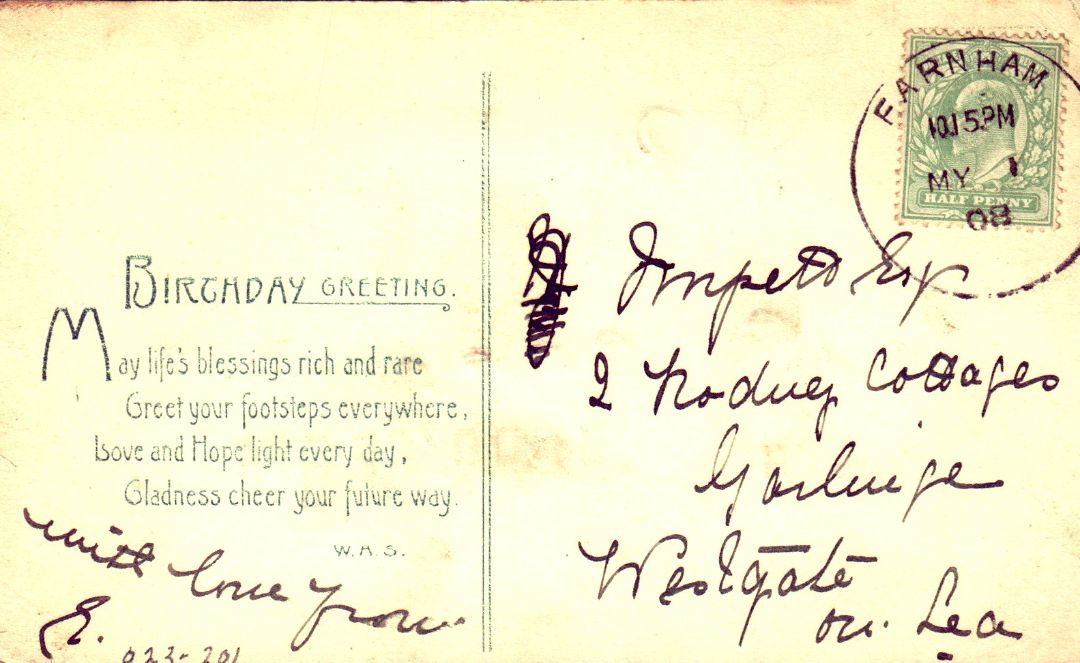 BIRTHDAY GREETING.
May life's blessings rich and rare
Greet your footsteps everywhere,
Love and Hope light every day,
Gladness cheer your future way.
W.H.S.
with love from
E.
023-201
FARNHAM
10.15.PM
MY 1
08
HALF PENNY
Impett Esq
2 Rodney Cottages
Garlinge
Westgate
on. Sea